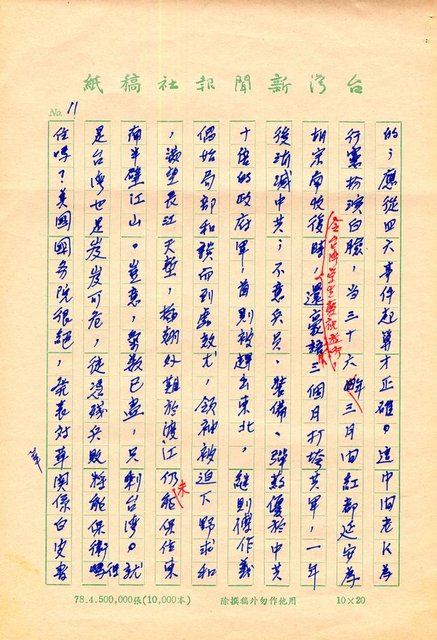 台灣新聞報社稿紙
No. 11
的；應從四六事件起算才正確。這中間老K為
行憲扮演白臉，當三十六年三月間紅都延安為
胡宗南收復時，還豪語三個月打垮共軍，一年
台灣學生慶祝遊行
後消滅中共；不意兵員、裝備、彈藥優於中共
十倍的政府軍，首則被趕出東北，繼則傅作義
倡始局部和談而到處，領袖被迫下野求和
，望長江天塹，插翅亦難於渡江仍能保住東
未
南半壁江山。豈意，氣數已盡，只剩台灣。就
是台灣也是岌岌可危，徒憑殘兵敗將能保衛得
住嗎？美國國務院很絕，發表對華關係白皮書
華
78.4.500,000張(10,000本)
除撰稿外勿作他用
10×20